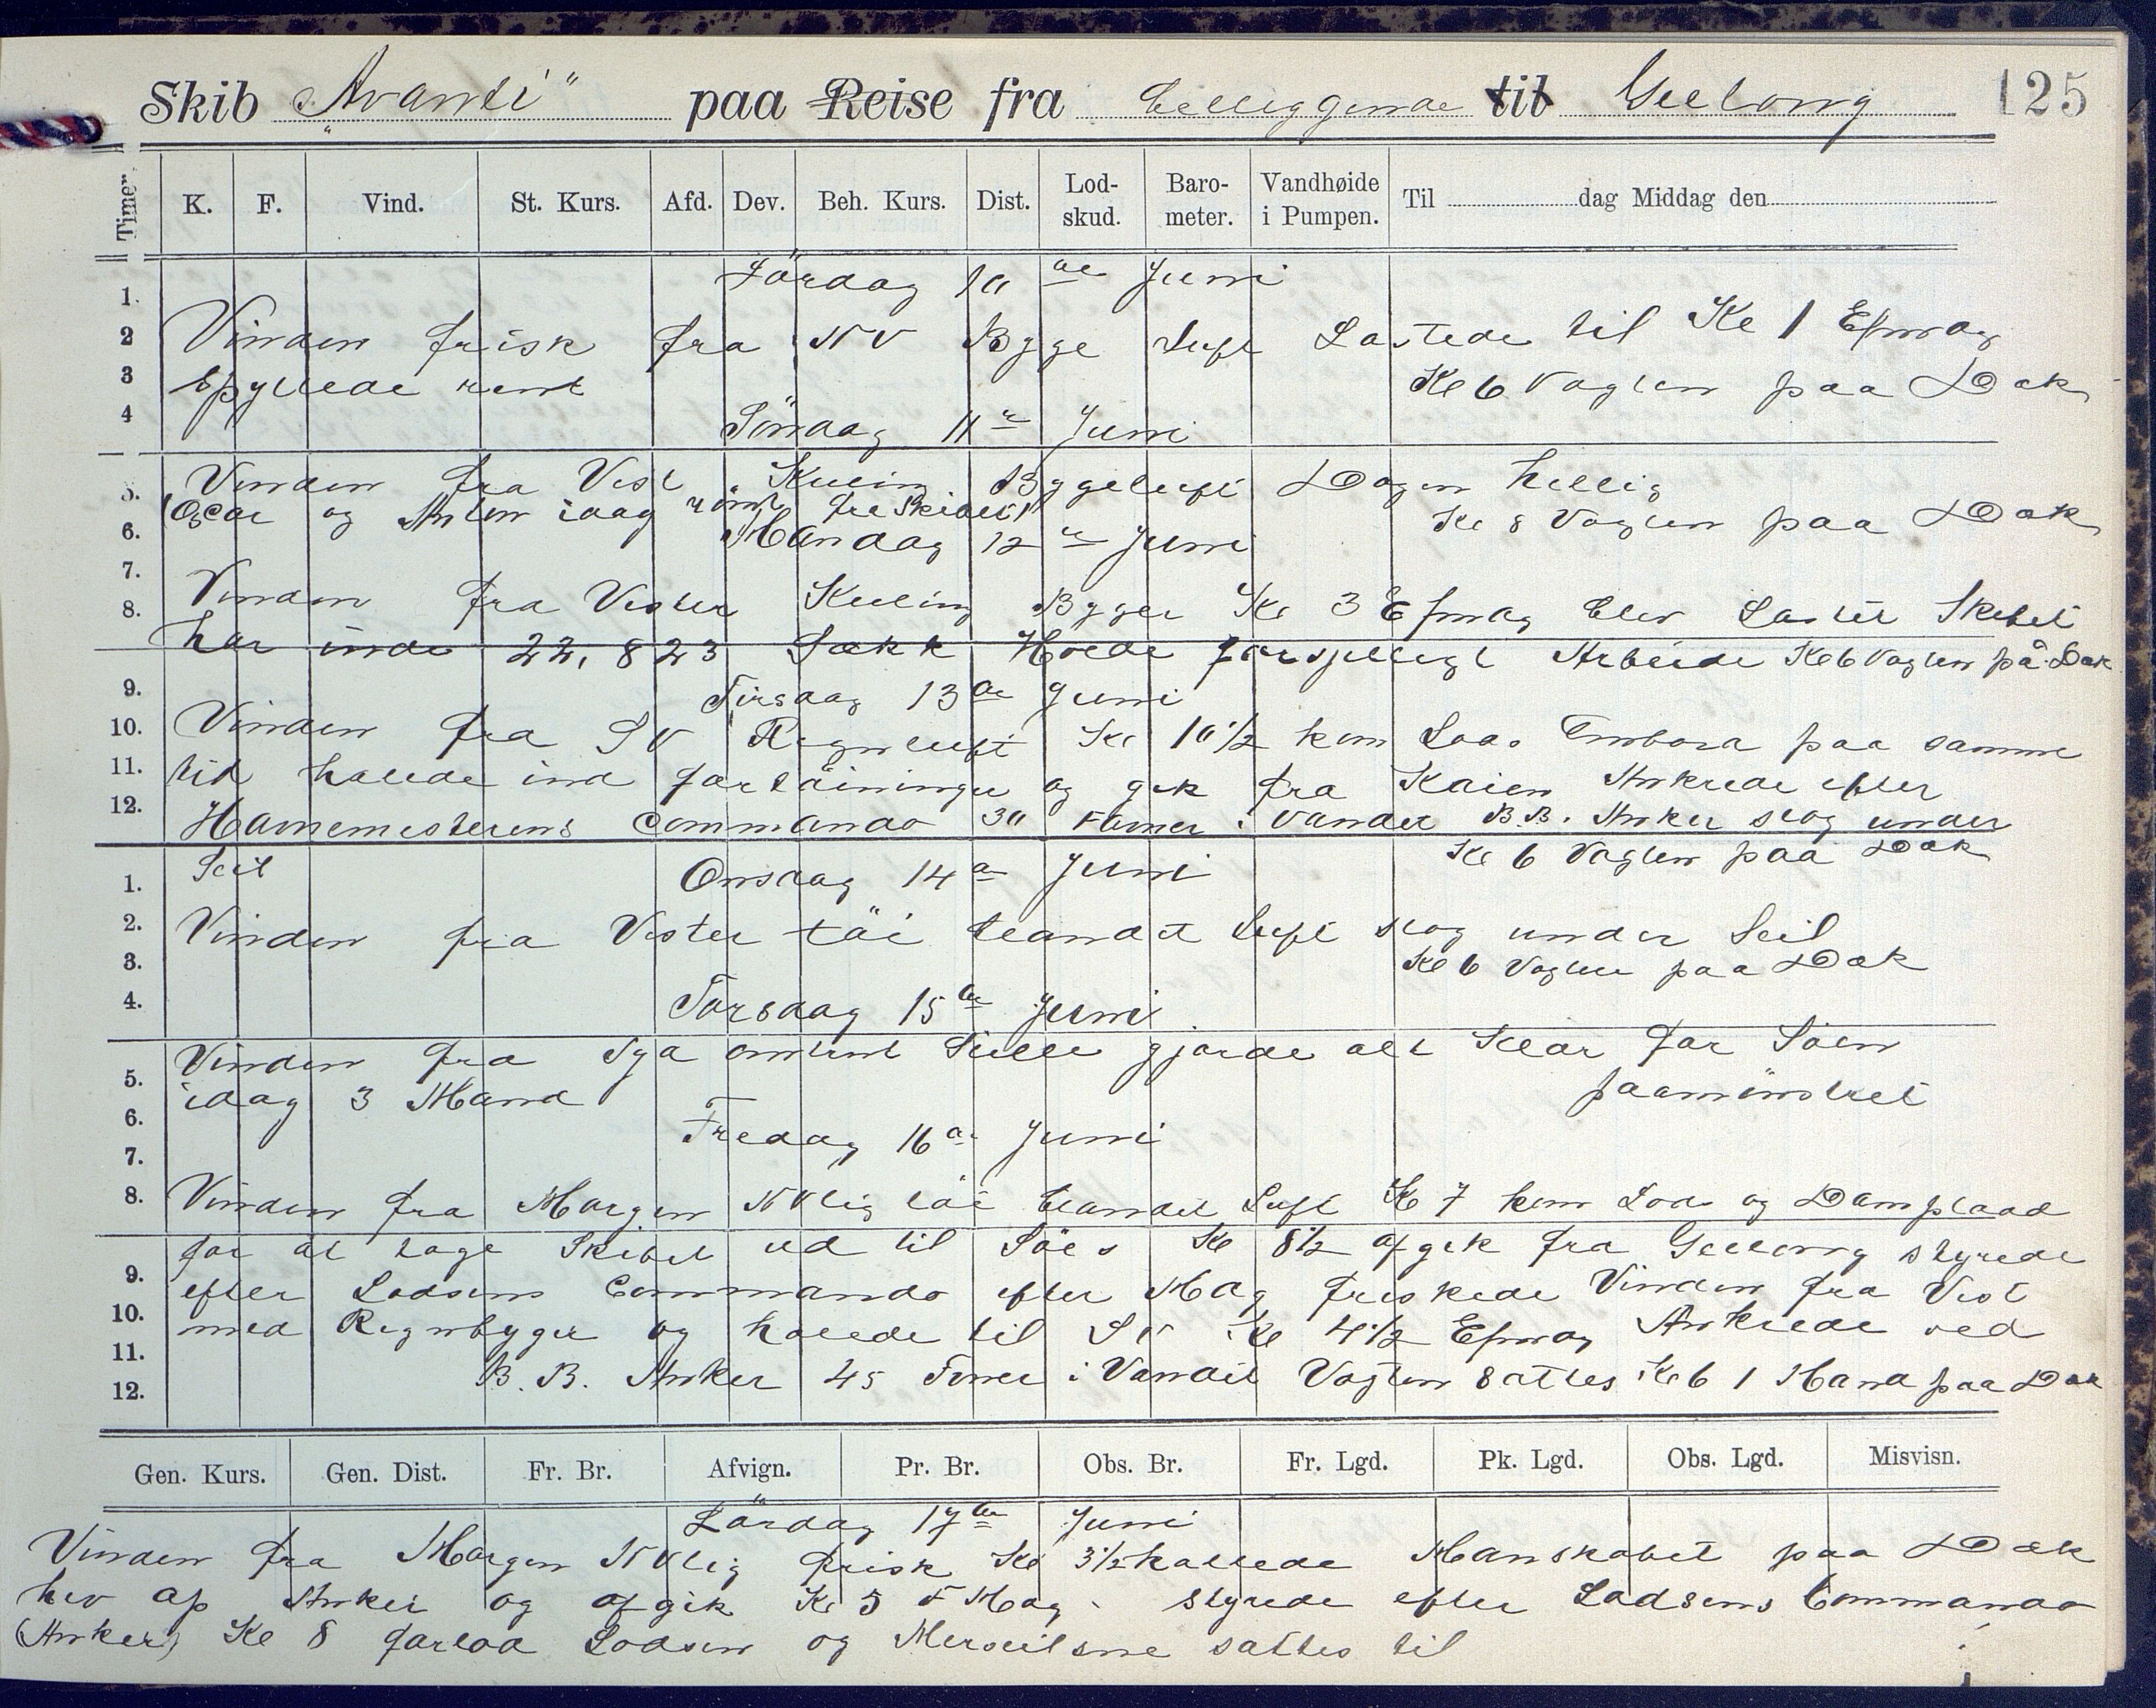 Skib "Avanti" paa Reise fra beliggende til Geelong 125
Timer. K. F. Vind. St. Kurs. Afd. Dev. Beh. Kurs. Dist. Lod-skud. Baro-meter. Vandhøide i Pumpen. Til dag Middag den
Lördag 10de Juni
1.
2 Vinden frisk fra NV Byge Luft Lastede til Kl 1 Efmdag
3 Spyllede rent Kl 6 Vagten paa Dæk
4 Söndag 11te Juni
5. Vinden fra Vest Kuling Bygeluft Dagen hellig
(Oscar og Anton idag römt fra Skibet) Kl 8 Vagten paa Dæk
6. Mandag 12te Juni
7.
8. Vinden fra Vester Kuling Byger Kl 3 Efmdag blev Lastet Skibet
har inde 22,823 Sækk Hvede forsjelligt Arbeide Kl 6 Vagten på Dæk
9. Tirsdag 13de Juni
10. Vinden fra SV Regnluft Kl 10 1/2 kom Lods Ombord paa samme
11. tid halede ind fortöininger og gik fra Kaien Ankrede efter
12. Havnemesterens Commando 30 Favner i Vandet B.B. Anker slog under
Seil Kl 6 Vagten paa Dæk
1. Onsdag 14de Juni
2. Vinden fra Vester töi blandet Luft slog under Seil
3. Kl 6 Vagten paa Dæk
4. Torsdag 15de Juni
5. Vinden fra Syd omtrent Stille gjorde alt Klar for Söen
idag 3 Mand paamönstret
6. Fredag 16de Juni
7.
8. Vinden fra Morgen NVlig töi blandet Luft Kl 7 kom Lods og Dampbaad
for at tage Skibet ud til Söes Kl 8 1/2 afgik fra Geelong styrede
9. efter Lodsens Commando efter Mdag friskede Vinden fra Vest
10. med Regnbyger og halede til SV Kl 4 1/2 Efmdag Ankrede ved
11.
12. B.B. Anker 45 Favner i Vandet Vagten sattes Kl 6 1 Mand paa Dæk
Gen. Kurs. Gen. Dist. Fr. Br. Afvign. Pr. Br. Obs. Br. Fr. Lgd. Pk. Lgd. Obs. Lgd. Misvisn.
Lördag 17de Juni
Vinden fra Morgen NVlig frisk Kl 3 1/2 kallede Manskabet paa Dæk
hev op Anker og afgik Kl 5 F Mdag styrede efter Lodsens Commando
(Anker) Kl 8 forlod Lodsen og Merseilene sattes til